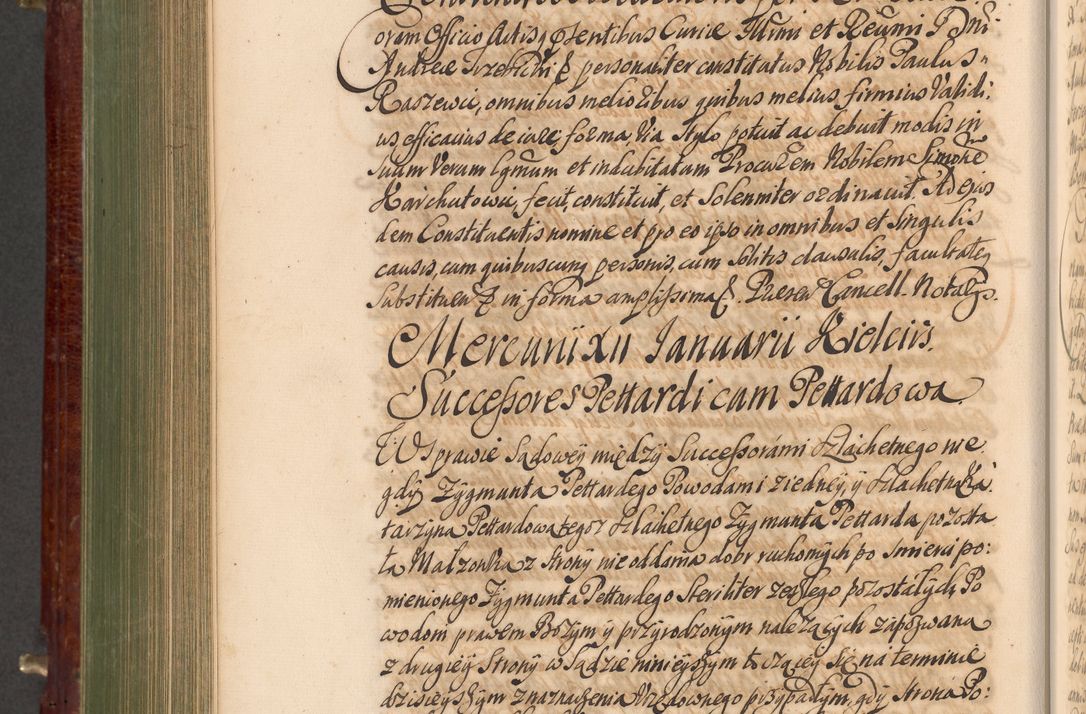 oram Officio Actisq pntibus Curiæ Illmi et Reumi D Dni
Andreæ Trzebicki & personaliter constitutus Nobilis Paulus
Raszewic, omnibus melioribus quibus melius firmius Validi:
us efficatius de iure, forma, Via Stylo potuit ac debuit modis in
suum Verum Lgmum et indubitatum Procurem Nobilem Simone
Karchutowic, fecit, constituit, et Solenniter ordinauit. Ad ejus
dem Constituentis nomine et pro eo ipso in omnibus et singulis
causis, cum quibuscunq personis, cum solitis clausulis, facultateq
substituen & in forma amplissima &. Przerem Cancell. Notariq.
Mercurii XII Januarii Kielciis.
Successores Pettardi cum Pettardowa
W Sprawie Sądowey między Successorámi Szlachetnego nie
gdy Zygmunta Pettardego Powodami z iedney, y Szlachetną Ká
tarzyną Pettardową tegoż Szlachetnego Zygmunta Pettarda pozosta
łą Małzonką z strony nieoddania dobr ruchomych po smierci po:
mienionego Zygmunta Pettardego steriliter zeszłego pozostałych Po
wodom prawem Bożym y przyrodzonym należących zapozwaną
z drugiey Strony w Sądzie ninieyszym toczącey się na terminie
dzisieyszym z naznaczenia Vrzędowego przypadłym, gdy strona Po: